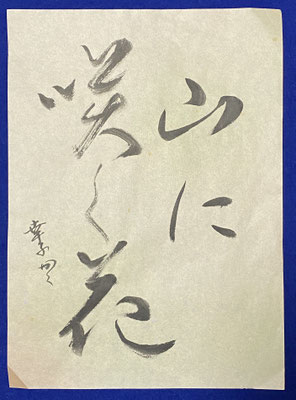 山に
咲く花